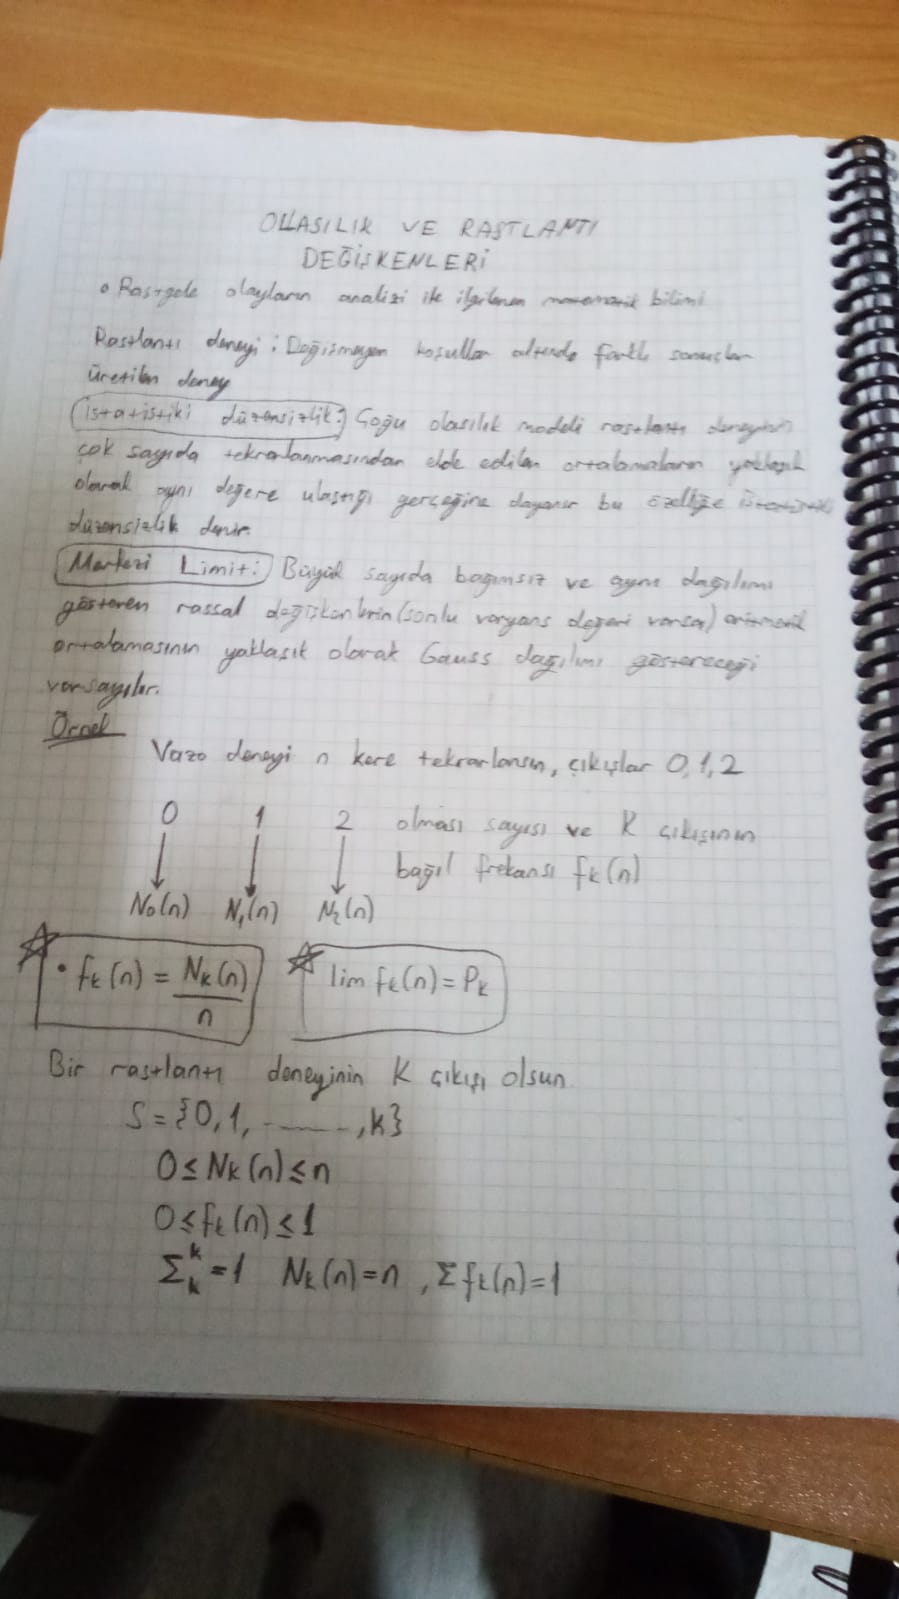 OLASILIK VE RASTLANTI
DEĞİŞKENLERİ
• Rastgele olayların analizi ile ilgilenen matematik bilimi
Rastlantı deneyi: Değişmeyen koşullar altında farklı sonuçlar
üretilen deney
İstatistiki düzensizlik: Çoğu olasılık modeli rastlantı deneyinin
çok sayıda tekrarlanmasından elde edilen ortalamaların yaklaşık
olarak aynı değere ulaştığı gerçeğine dayanır bu özelliğe istatistiki
düzensizlik denir.
Merkezi Limit: Büyük sayıda bağımsız ve aynı dağılımı
gösteren rassal değişkenlerin (sonlu varyans değeri varsa) aritmetik
ortalamasının yaklaşık olarak Gauss dağılımı göstereceği
varsayılır.
Örnek
Vazo deneyi n kere tekrarlansın, çıkışlar 0,1,2
0 1 2 olması sayısı ve K çıkışının
bağıl frekansı fk(n)
N₀(n) N₁(n) N₂(n)
• fk(n) = Nk(n)/n lim fk(n) = Pk
Bir rastlantı deneyinin K çıkışı olsun
S = {0,1, ......, k}
0 ≤ Nk(n) ≤ n
0 ≤ fk(n) ≤ 1
Σ k k = 1 Nk(n) = n , Σ fk(n) = 1